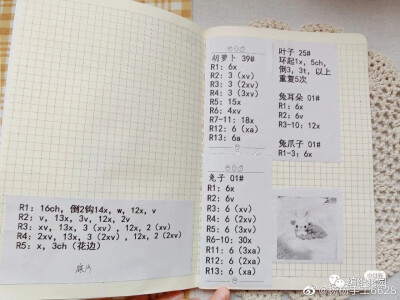 R1: 16ch, 倒2钩14x, w, 12x, v
R2: v, 13x, 3v, 12x, 2v
R3: xv, 13x, 3 (xv), 12x, 2 (xv)
R4: 2xv, 13x, 3 (2xv), 12x, 2 (2xv)
R5: x, 3ch (花边)
胡萝卜 39#
R1: 6x
R2: 3 (xv)
R3: 3 (2xv)
R4: 3 (3xv)
R5: 15x
R6: 4xv
R7-11: 18x
R12: 6 (xa)
R13: 6a
兔子 01#
R1: 6x
R2: 6v
R3: 6 (xv)
R4: 6 (2xv)
R5: 6 (3xv)
R6-10: 30x
R11: 6 (3xa)
R12: 6 (2xa)
R13: 6 (xa)
叶子 25#
环起1x, 5ch,
倒3, 3t, 以上
重复5次
兔耳朵 01#
R1: 6x
R2: 6v
R3-10: 12x
兔爪子 01#
R1-3: 6x